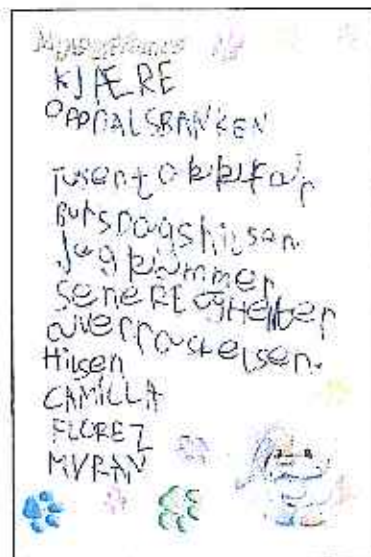 KJÆRE
OPPDALSBANKEN
TUSEN TAKK FOR
BURSDAGSHILSEN.
Jeg KOMMER
SENERE OG HENTER
OVERRASKELSEN.
HILSEN
CAMILLA
FLOREZ